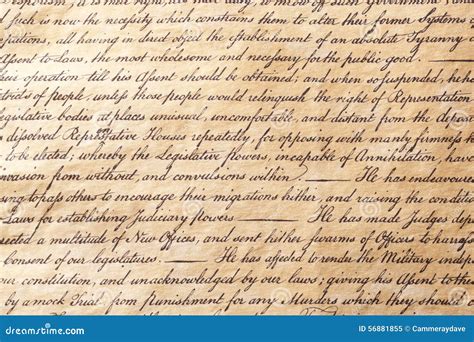 it is their right, it is their duty, to throw off such Government, and
such is now the necessity which constrains them to alter their former Systems
rpations, all having in direct object the establishment of an absolute Tyranny o
Assent to Laws, the most wholesome and necessary for the public good. —
heir operation till his Assent should be obtained; and when so suspended, he ha
tricts of people, unless those people would relinquish the right of Representation
egislative bodies at places unusual, uncomfortable, and distant from the depos
dissolved Represtative Houses repeatedly, for opposing with manly firmness h
to be elected; whereby the Legislative powers, incapable of Annihilation, have
nvasion from without, and convulsions within. — He has endeavoure
sing to pass others to encourage their migrations hither, and raising the conditio
Laws for establishing Judiciary powers — He has made Judges dep
rected a multitude of New Offices, and sent hither swarms of Officers to haras
Consent of our legislatures. — He has affected to render the Military indep
ur constitution, and unacknowledged by our laws; giving his Assent to the
by a mock Trial, from Punishment for any Murders which they should
dreamstime.com
56881855 © Cammeraydave